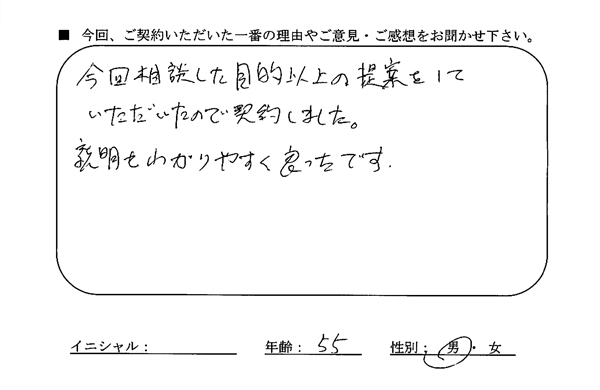 ■ 今回、ご契約いただいた一番の理由やご意見・ご感想をお聞かせ下さい。
今回相談した目的以上の提案をして
いただいたので契約しました。
説明もわかりやすく良ったです.
イニシャル： 年齢： 55 性別： 男・女